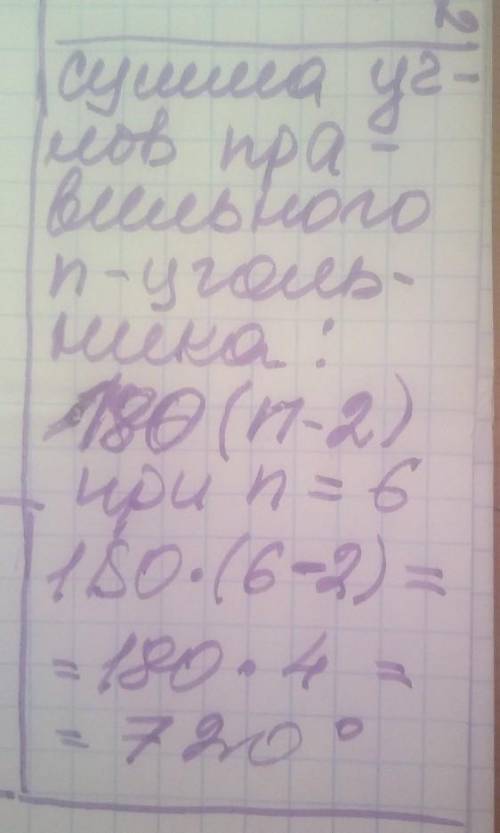 сумма уг-
лов пра-
вильного
n-уголь-
ника:
180(n-2)
при n = 6
180·(6-2)=
=180·4 =
= 720°